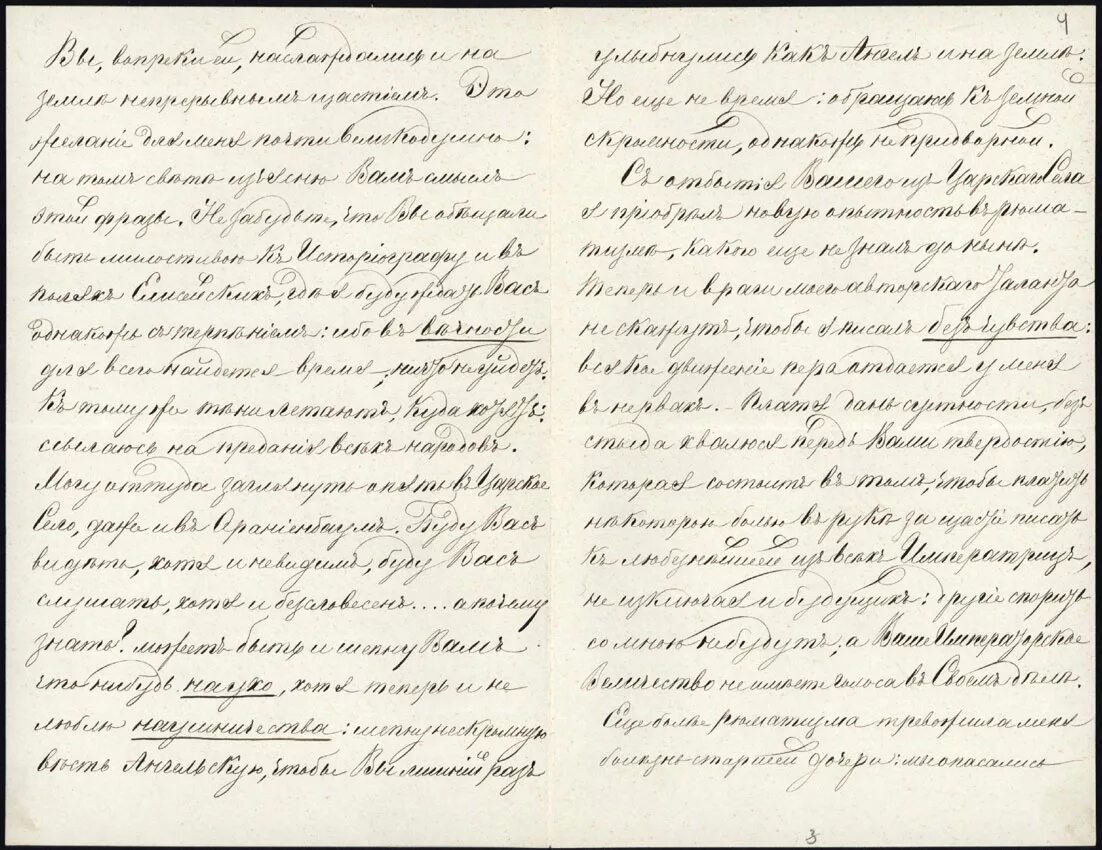 4
Вы, вопреки ей, наслаждались и на
землѣ непрерывнымъ щастіемъ. Это
желаніе для меня почти великодушно:
на томъ свѣтѣ изъясню Вамъ смыслъ
этой фразы. Не забудьте, что Вы обѣщали
быть милостивою къ Исторіографу и въ
поляхъ Елисейскихъ, гдѣ я буду ждать Васъ
однакожь съ терпѣніемъ: ибо въ вѣчности
для всего найдется время, ничто не уйдетъ.
Къ тому же тѣни летаютъ, куда хотятъ:
ссылаюсь на преданія всѣхъ народовъ.
Могу оттуда заглянуть опять въ Царское
Село, даже и въ Ораніенбаумъ. Буду Васъ
видѣть, хотя и невидимъ, буду Васъ
слушать, хотя и безсловесенъ.... а почему
знать? можетъ быть и шепну Вамъ
что нибудь наухо, хотя теперь и не
люблю наушничества: шепну нескромную
вѣсть Ангельскую, чтобы Вы лишній разъ
улыбнулись какъ Ангелъ и на землѣ.
Но еще не время: обращаюсь къ земной
скромности, однакожь не придворной.
Съ отбытія Вашего изъ Царскаго Села
я пріобрѣлъ новую опытность въ рюма-
тизмѣ, какого еще не зналъ до нынѣ.
Теперь и враги моего авторскаго таланта
не скажутъ, чтобы я писалъ безъ чувства:
всякое движеніе пера отдается у меня
въ нервахъ. - Платя дань суетности, безъ
стыда хвалюся передъ Вами твердостію,
которая состоитъ въ томъ, чтобы платить
нѣкоторою болью въ рукѣ за щастіе писать
къ любезнѣйшей изъ всѣхъ Императрицъ,
не изключая и будущихъ: другіе спорить
со мною не будутъ, а Ваше Императорское
Величество не имѣете голоса въ Своемъ дѣлѣ.
Еще болѣе рюматизма тревожила меня
болѣзнь старшей дочери: мы опасались
3